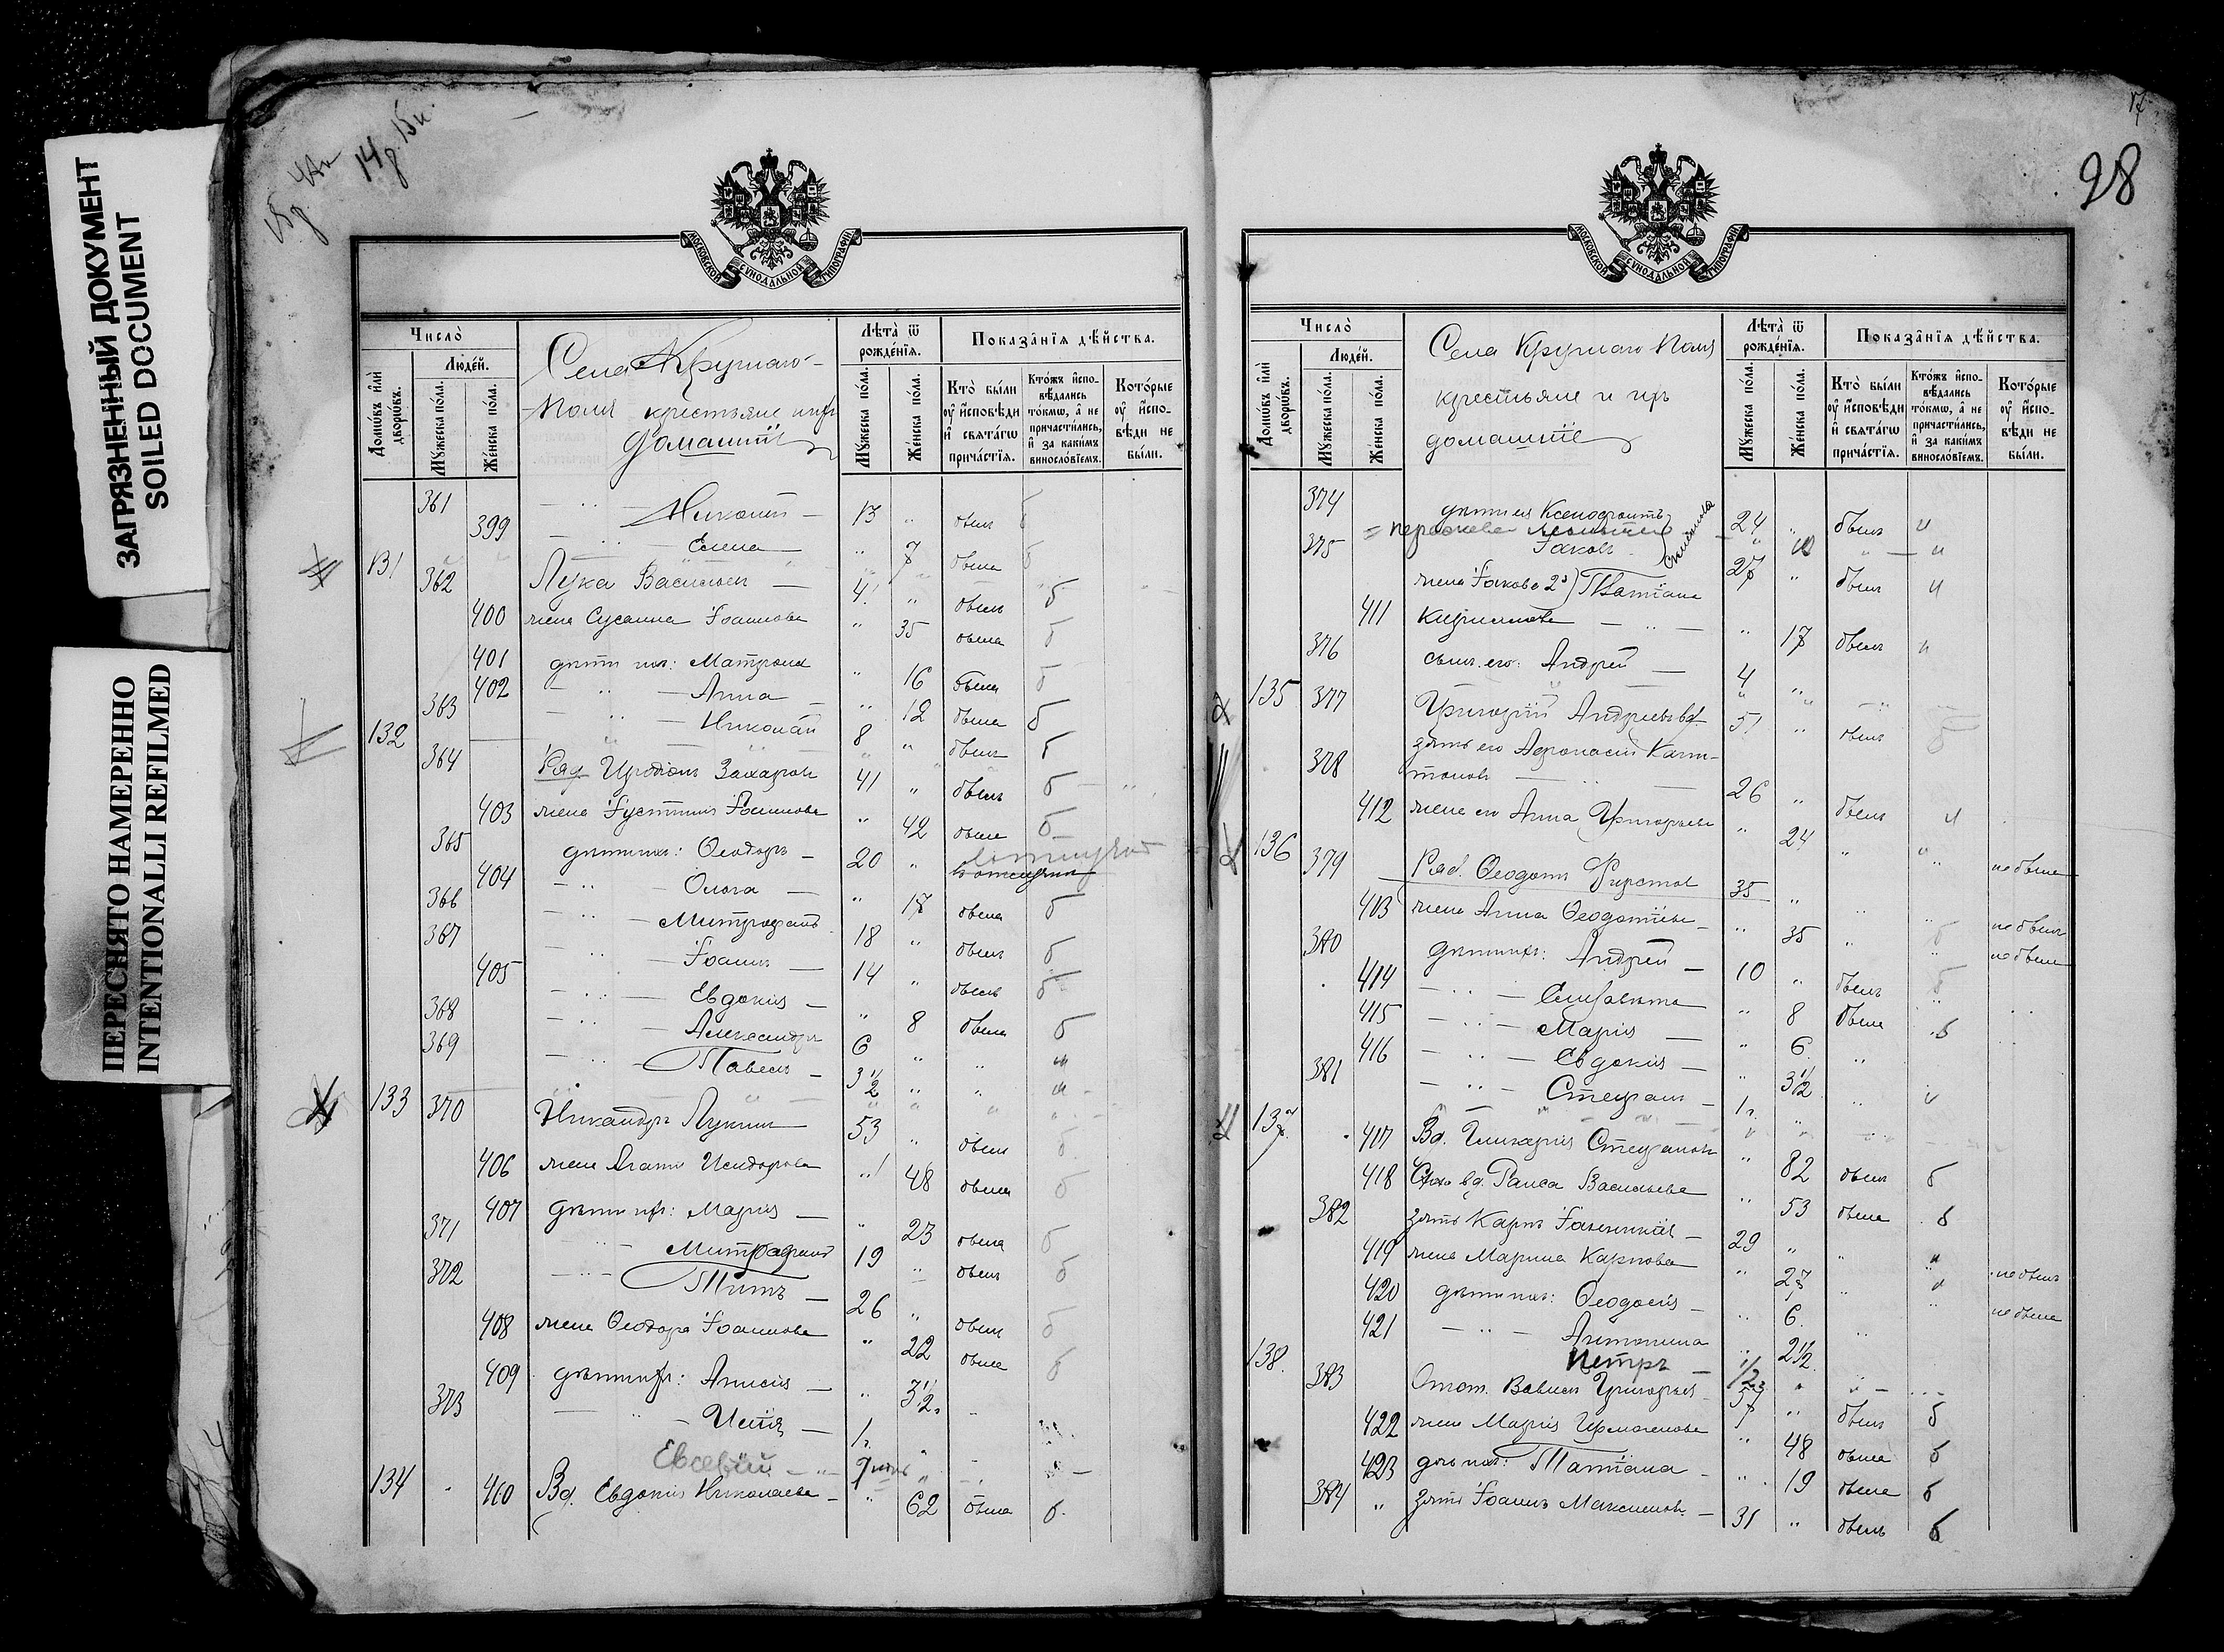 ЗАГРЯЗНЕННЫЙ ДОКУМЕНТ
SOILED DOCUMENT
ПЕРЕСНЯТО НАМЕРЕННО
INTENTIONALLI REFILMED
14
МОСКОВСКОЙ СѴНОДАЛЬНОЙ ТИПОГРАФІИ
Число̀
Людей.
Домѡвъ и҆лѝ дворѡвъ.
Мꙋжеска по́ла.
Же́нска по́ла.
Села Круглаго-
Поля крестьяне и ихъ
домашніе
Лѣта̀ ѿ рожде́нїѧ.
Мꙋжеска по́ла.
Же́нска по́ла.
Показа̂нїѧ дѣ́йства.
Кто̀ бы́ли ᲂу҆ и҆́сповѣди и҆ свѧта́гѡ прича́стїѧ.
Кто́жъ и҆спо-вѣ́дались то́кмѡ, а҆ не причасти́лись, и҆ за каки́мъ виносло́вїемъ.
Кото́рые ᲂу҆ и҆́спо-вѣди не бы́ли.
361 — " — Николай — 13 " былъ б
399 — " — Елена — " 7 была б
131 362 Лука Васильевъ — 41 " былъ б
400 жена Сусанна Іоаннова " 35 была б
401 дѣти ихъ: Матрона " 16 была б
402 — " — Анна — " 12 была б
363 — " — Николай 8 " былъ б
132 364 Ряд. Иродіонъ Захаровъ 41 " былъ б
403 жена Іустинія Іоаннова " 42 была б
365 дѣти ихъ: Ѳеодоръ — 20 " въ отлучкѣ
404 — " — Ольга — " 17 была б
366 — " — Митрофанъ 18 " былъ б
367 — " — Іоаннъ — 14 " былъ б
405 — " — Евдокія — " 8 была б
368 — " — Александръ 6 " "
369 — " — Павелъ — 3 1/2 " "
133 370 Никандръ Лукинъ 53 " былъ б
406 жена Агафія Исидорова " 48 была б
407 дѣти ихъ: Марія — " 23 была б
371 — " — Митрофанъ 19 " былъ б
372 — " — Титъ — 26 " былъ б
408 жена Ѳеодора Іоаннова " 22 была б
409 дѣти ихъ: Анисія — " 3 1/2
373 — " — Илія — 1 г.
Евсевій — " —
134 410 Вд. Евдокія Николаева — " 62 была б.
28
МОСКОВСКОЙ СѴНОДАЛЬНОЙ ТИПОГРАФІИ
Число̀
Людей.
Домѡвъ и҆лѝ дворѡвъ.
Мꙋжеска по́ла.
Же́нска по́ла.
Села Круглаго Поля
крестьяне и ихъ
домашніе
Лѣта̀ ѿ рожде́нїѧ.
Мꙋжеска по́ла.
Же́нска по́ла.
Показа̂нїѧ дѣ́йства.
Кто̀ бы́ли ᲂу҆ и҆́сповѣди и҆ свѧта́гѡ прича́стїѧ.
Кто́жъ и҆спо-вѣ́дались то́кмѡ, а҆ не причасти́лись, и҆ за каки́мъ виносло́вїемъ.
Кото́рые ᲂу҆ и҆́спо-вѣди не бы́ли.
374 дѣти ея Ксенофонтъ 24 " былъ
375 Іаковъ 27 " былъ
жена Іакова 2я) Татіана
411 Кириллова — " — " 17 была
376 сынъ его: Андрей — 4 "
135 377 Григорій Андреевъ вд. 51 " былъ б
зять его Аѳанасій Капи-
378 тоновъ — " — 26 " былъ
412 жена его Анна Григорьева " 24 "
136 379 Ряд. Ѳеодотъ Фирсовъ 35 " не былъ
413 жена Анна Ѳеодотіева — " 35 " не была
380 дѣти ихъ: Андрей — 10 " былъ
414 — " — Елисавета " 8 была
415 — " — Марія — " 6
416 — " — Евдокія — " 3 1/2
381 — " — Стефанъ — 1 г.
137 417 Вд. Гликерія Стефанова " 82 была б
418 вд. Раиса Васильева " 53 была б
382 зять Карпъ — 29 " "
419 жена Марина Карпова " 27 " не была
420 дѣти ихъ: Ѳеодосія — " 6
421 — " — Антонина " 2 1/2
Петръ — 1/2
138 383 Отст. Вавилъ Григорьевъ 57 " былъ б
422 жена Марія Ермогенова " 48 была б
423 дочь ихъ: Татіана — " 19 была б
384 " зять Іоаннъ Максимовъ — 31 " былъ б